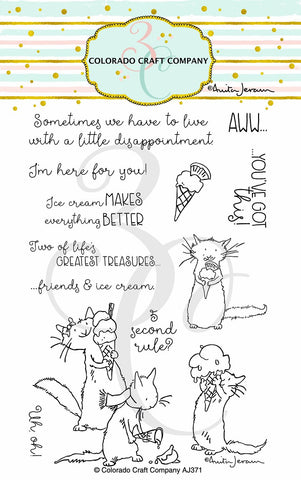 COLORADO CRAFT COMPANY
©Anita Jeram
Sometimes we have to live
with a little disappointment.
AWW...
I'm here for you!
YOU'VE GOT
this!
Ice cream MAKES
everything BETTER
Two of life's
GREATEST TREASURES...
...friends & ice cream.
5
second
rule?
Uh oh!
©Anita Jeram
© Colorado Craft Company AJ371